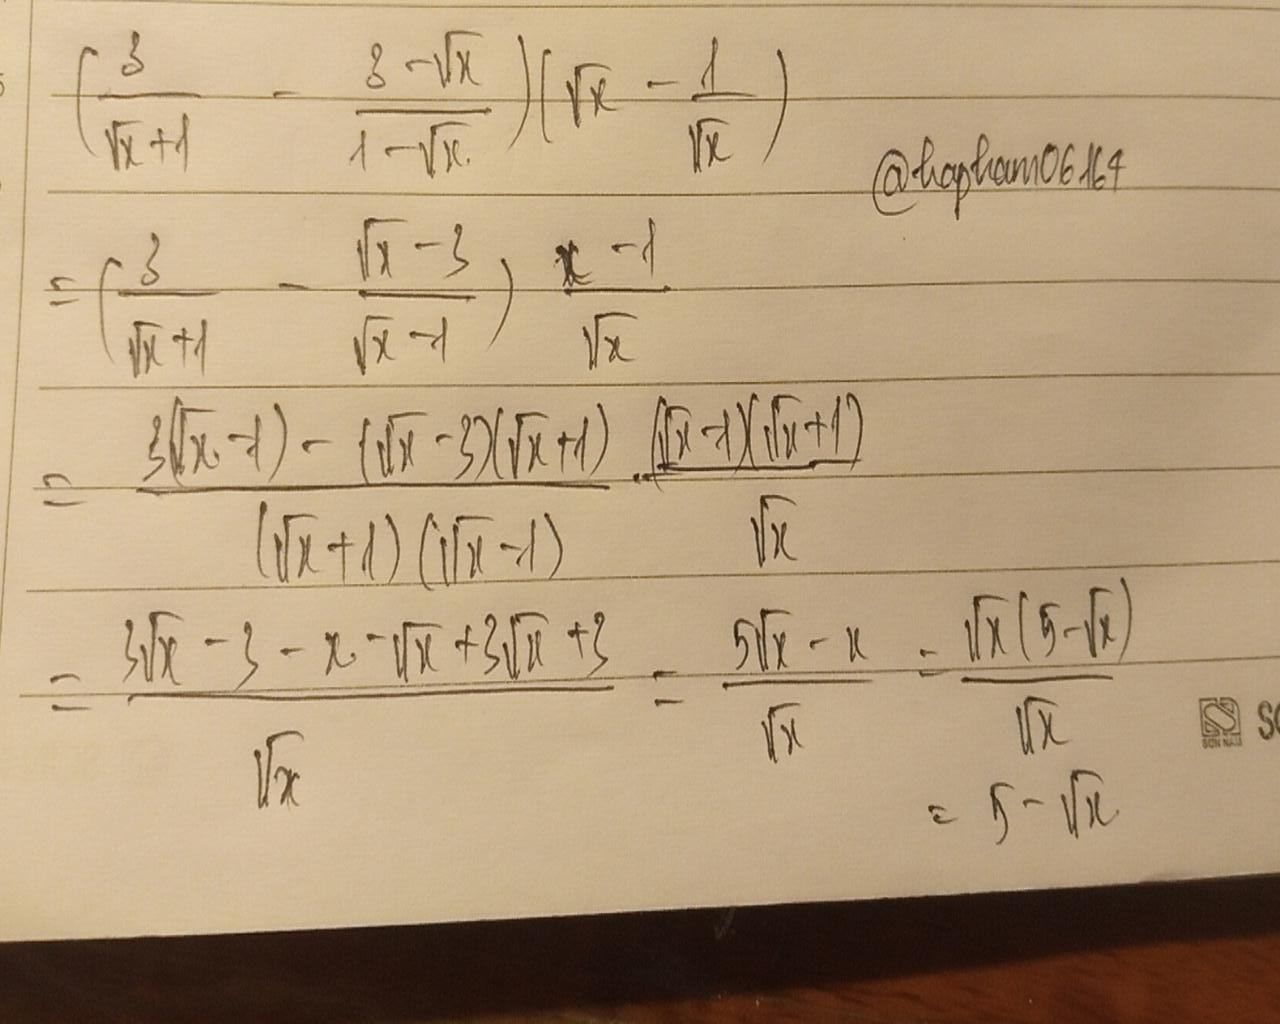 (3/(√x+1) - (3-√x)/(1-√x))(√x - 1/√x)
@hapham06164
= (3/(√x+1) - (√x-3)/(√x-1)) (x-1)/√x
= (3(√x-1) - (√x-3)(√x+1))/((√x+1)(√x-1)) . ((√x-1)(√x+1))/√x
= (3√x - 3 - x - √x + 3√x + 3)/√x = (5√x - x)/√x = (√x(5-√x))/√x
= 5 - √x